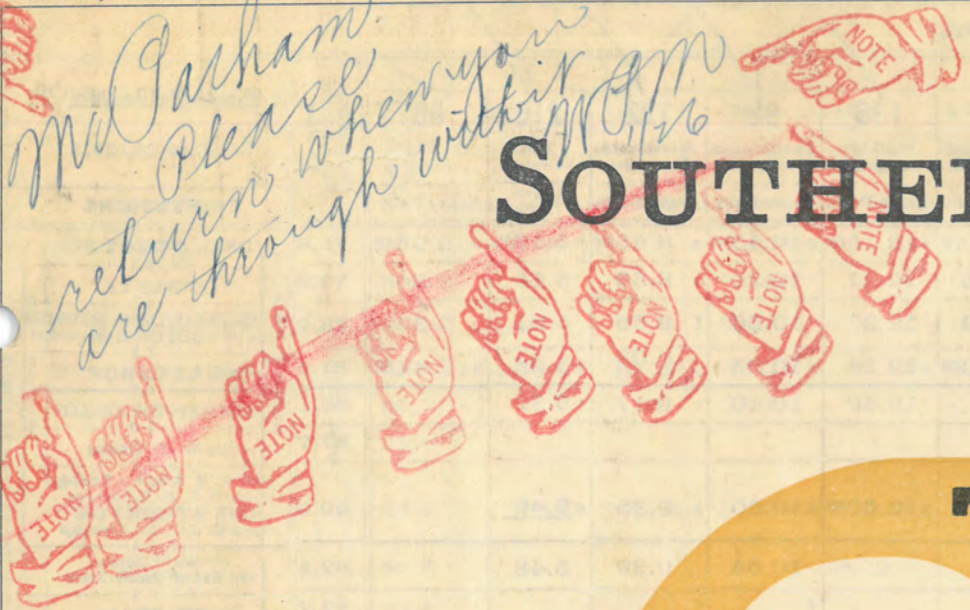 Mr Latham.
Please
return when you
are through with it
WSM
1/26
SOUTHE
NOTE
NOTE
NOTE
NOTE
NOTE
NOTE
NOTE
NOTE
NOTE